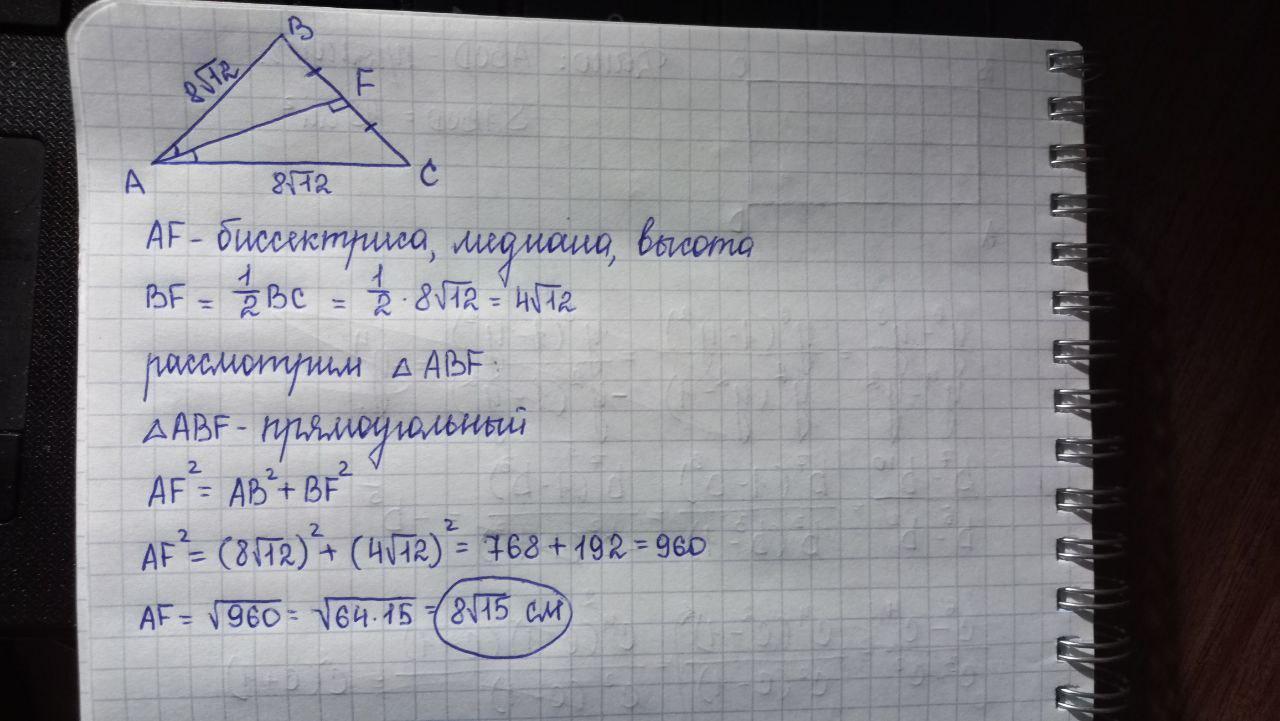 B
8√12
F
A
8√12
C
AF - биссектриса, медиана, высота
BF = 1/2 BC = 1/2 · 8√12 = 4√12
рассмотрим △ ABF
△ABF - прямоугольный
AF² = AB² + BF²
AF² = (8√12)² + (4√12)² = 768 + 192 = 960
AF = √960 = √64·15 = 8√15 см